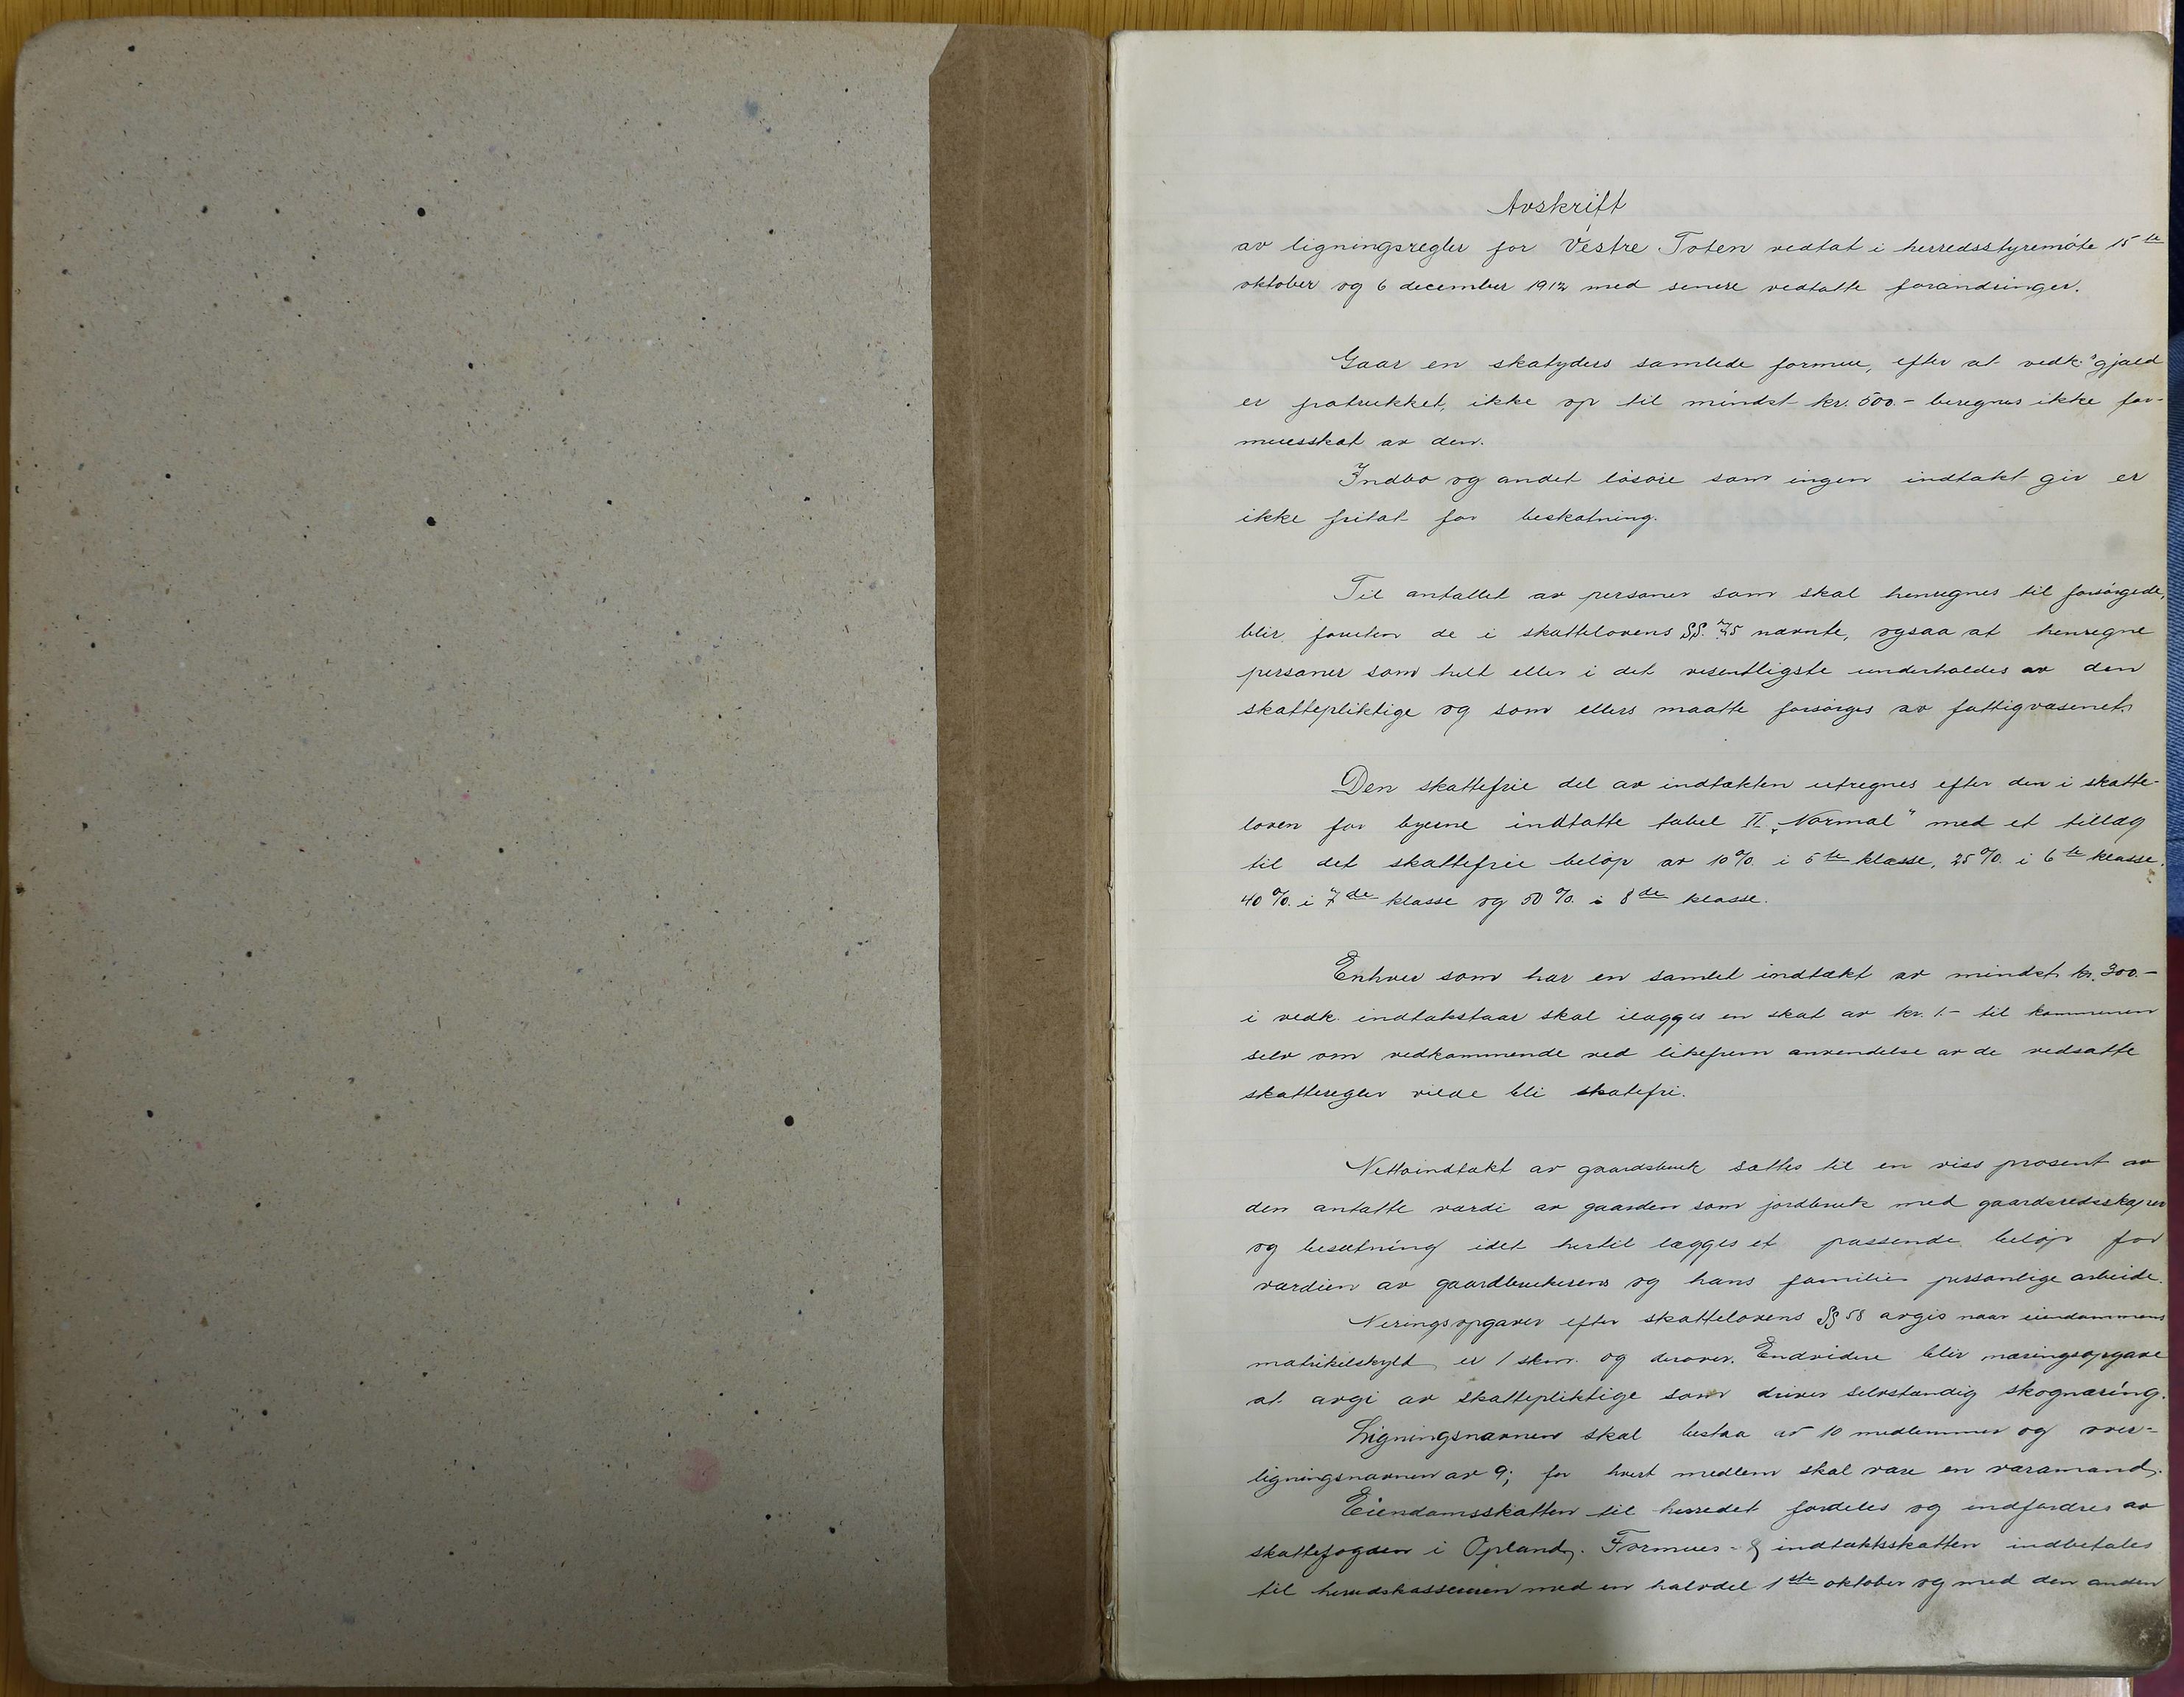 Avskrift
av ligningsregler for Vestre Toten vedtat i herredsstyremöte 15te
oktober og 6 december 1912 med senere vedtatte forandringer.
Gaar en skatyders samlede formue, efter at vedk. gjæld
er fratrukket, ikke op til mindst kr. 500.- beregnes ikke for-
muesskat av den.
Indbo og andet lösöre som ingen indtækt gir er
ikke fritat for beskatning.
Til antallet av personer som skal henregnes til forsörgede,
blir, foruten de i skattelovens §§. 75 nævnte, ogsaa at henregne
personer som helt eller i det vesentligste underholdes av den
skattepliktige og som ellers maatte forsörges av fattigvæsenet.
Den skattefrie del av indtækten utregnes efter den i skatte-
loven for byerne indtatte tabel II „Normal" med et tillæg
til det skattefrie belöp av 10%. i 5te klasse, 25%. i 6te klasse,
40%. i 7de klasse og 50%. i 8de klasse.
Enhver som har en samlet indtækt av mindst kr. 300.-
i vedk. indtæktsaar skal ilægges en skat av kr. 1.- til kommunen
selv om vedkommende ved likefrem anvendelse av de vedsatte
skatteregler vilde bli skatefri.
Nettoindtækt av gaardsbruk sættes til en viss prosent av
den antatte værdi av gaarden som jordbruk med gaardsredsskaper
og besætning idet hertil lægges et passende belöp for
værdien av gaardbrukerens og hans families personlige arbeide.
Neringsopgaver efter skattelovens §§ 58 avgis naar eiendommens
matrikelskyld er 1 skm. og derover. Endvidere blir næringsopgave
at avgi av skattepliktige som driver selvstændig skognæring.
Ligningsnævnen skal bestaa av 10 medlemmer og over-
ligningsnævnen av 9; for hvert medlem skal være en varamand.
Eiendomsskatten til herredet fordeles og indfordres av
skattefogden i Opland. Formues- & indtæktsskatten indbetales
til herredskassereren med en halvdel 1ste oktober og med den anden